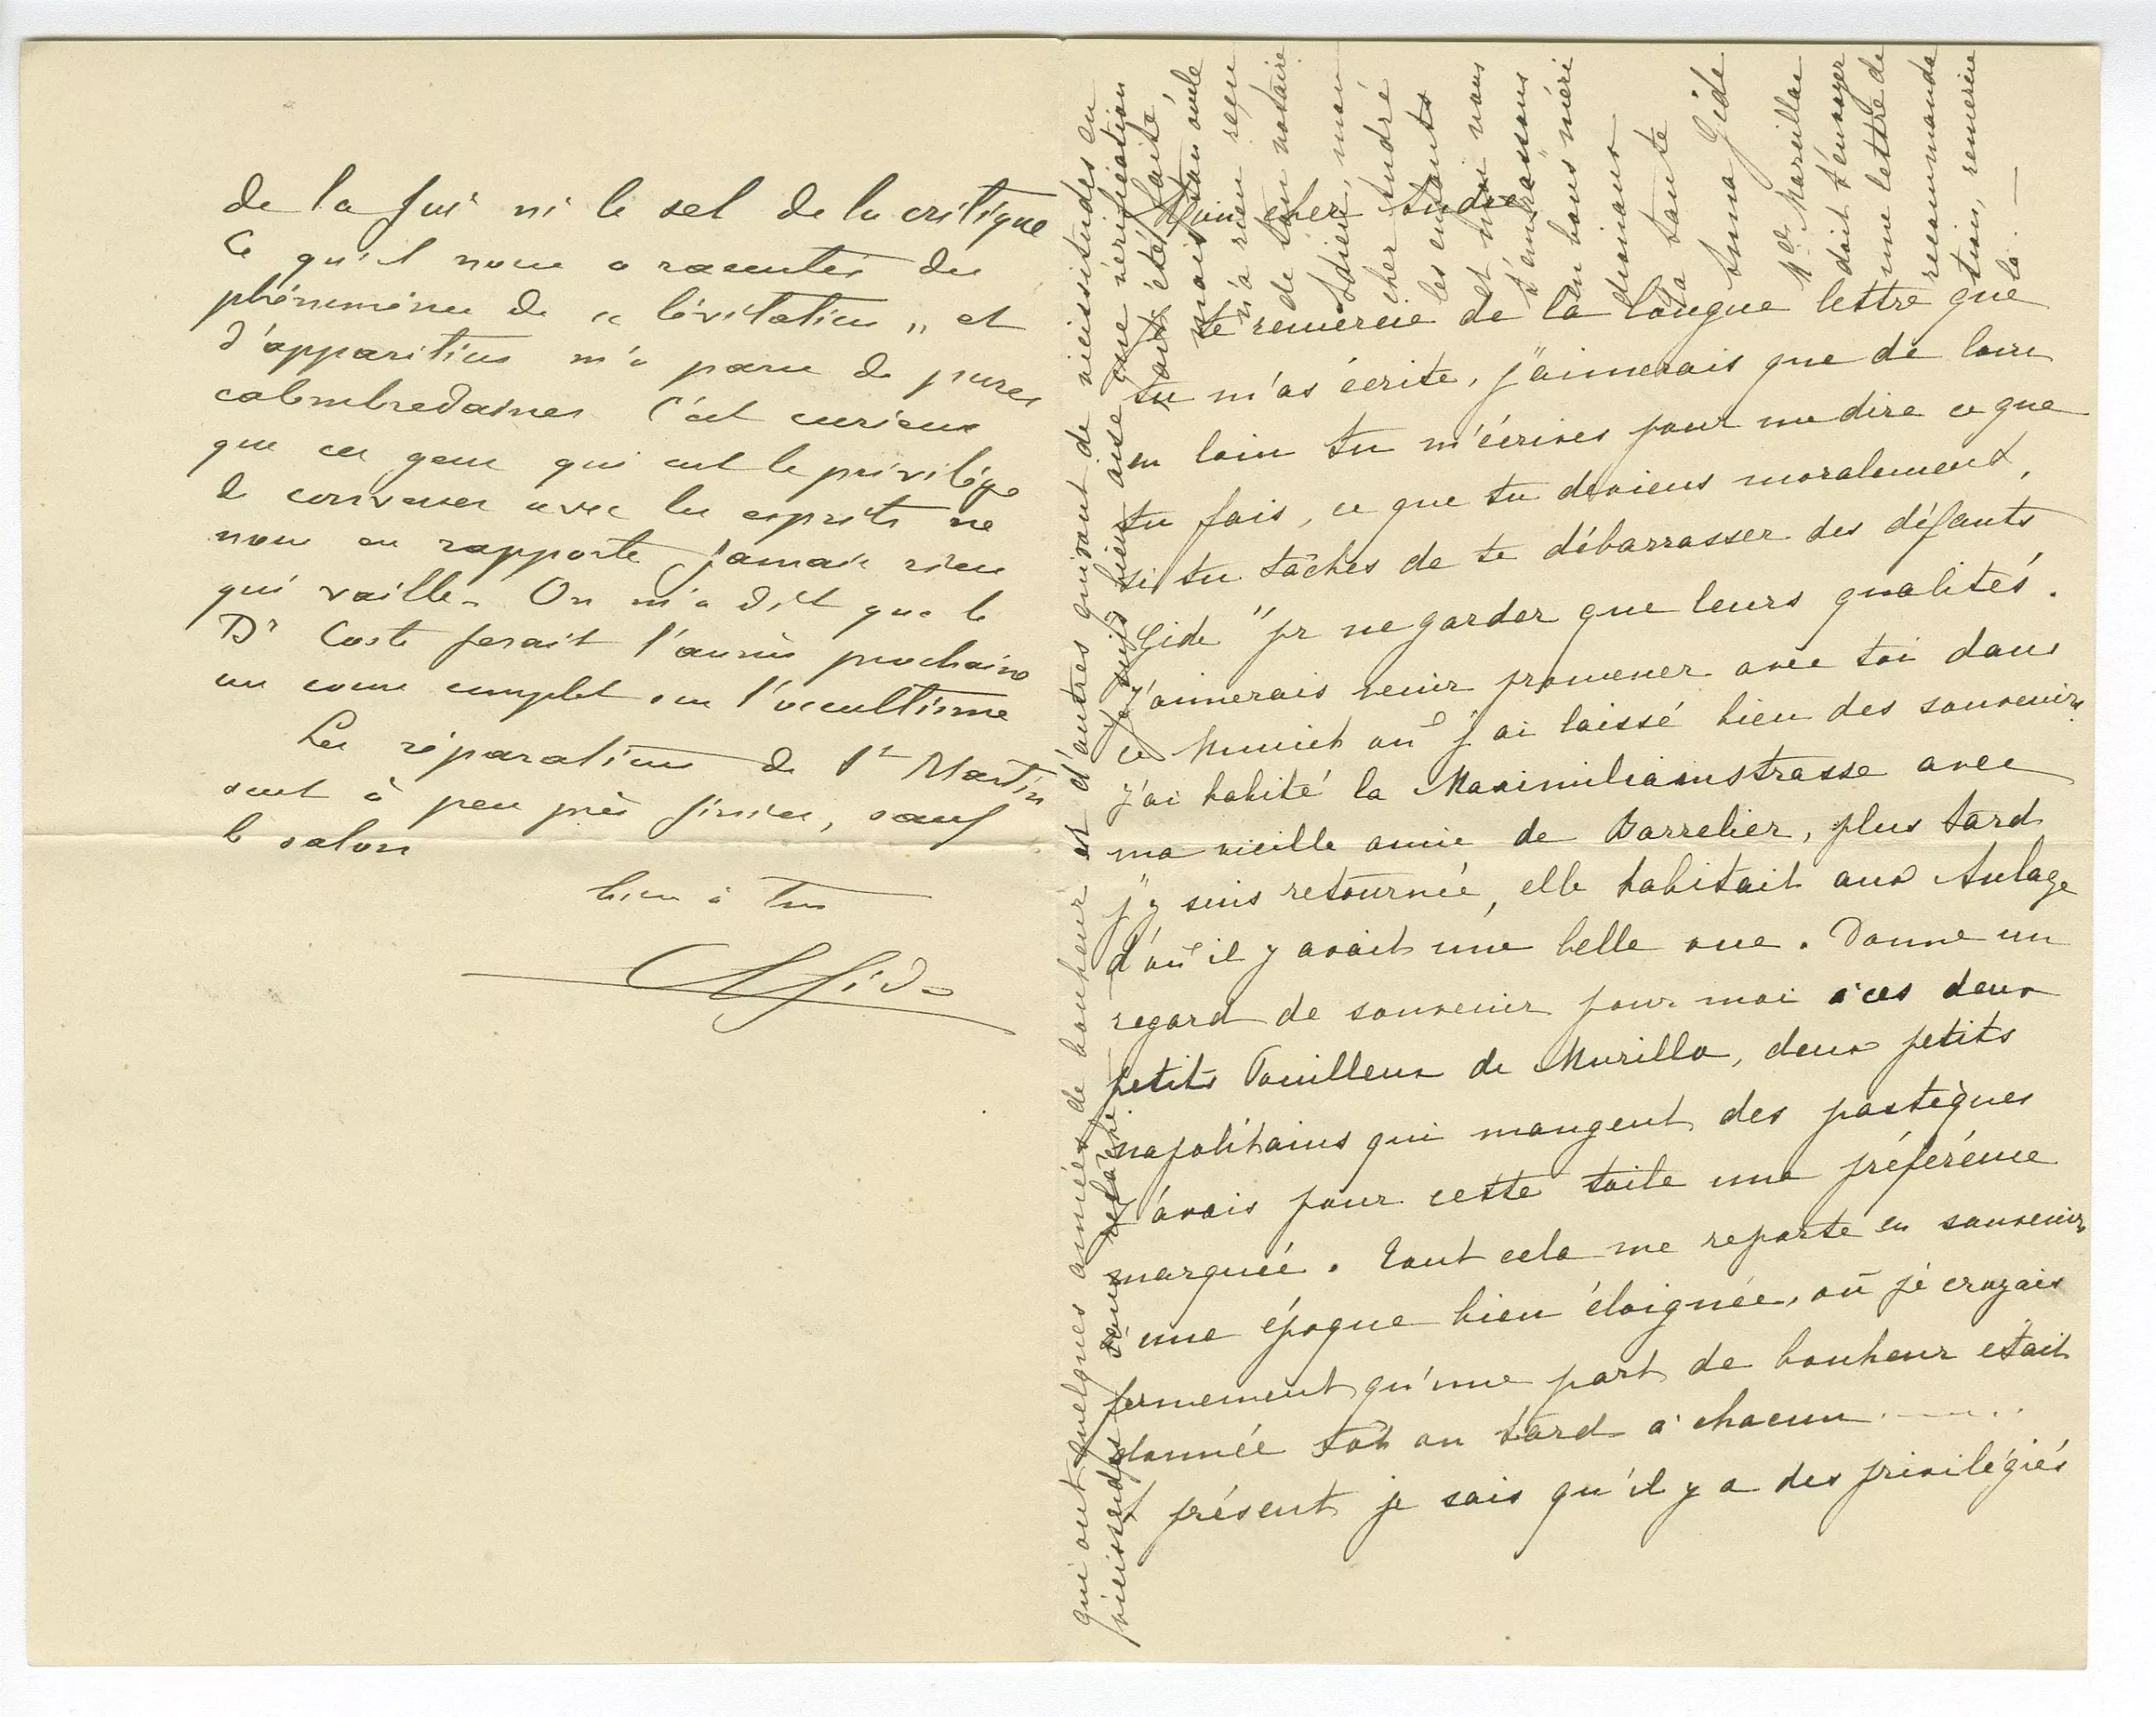 de la foi ni le sel de la critique
Ce qu'il nous a raconté des
phénomènes de "lévitation" et
d'apparition m'a paru de pures
calembredaines. C'est curieux
que ces gens qui ont le privilège
de converser avec les esprits ne
nous en rapporte jamais rien
qui vaille. On m'a dit que le
Dr Coste ferait l'année prochaine
un cours complet sur l'occultisme
Les réparations de St Martin
sont à peu près finies, sauf
le salon
bien à toi
Ch Gide
Mon cher André
Je te remercie de la longue lettre que
tu m'as écrite, j'aimerais que de loin
en loin tu m'écrives pour me dire ce que
tu fais, ce que tu deviens moralement,
si tu tâches de te débarrasser des défauts
"Gide" pr ne garder que leurs qualités.
J'aimerais venir promener avec toi dans
ce Munich où j'ai laissé bien des souvenirs.
J'ai habité la Maximilianstrasse avec
ma vieille amie de Barrelier, plus tard
j'y suis retournée, elle habitait aux Anlage
d'où il y avait une belle vue. Donne un
regard de souvenir pour moi à ces deux
petits Pouilleux de Murillo, deux petits
napolitains qui mangent des pastèques
J'avais pour cette toile une préférence
marquée. Tout cela me reporte en souvenir
à une époque bien éloignée, où je croyais
fermement qu'une part de bonheur était
donnée tôt ou tard à chacun . — . .
A présent je sais qu'il y a des privilégiés
qui ont quelques années de bonheur et d'autres qui vont de vicissitudes en
vicissitudes sans relâche. Je suis bien aise que vérification
ait été faite,
mais ton oncle
n'a rien reçu
de ton notaire.
Adieu, mon
cher André
les enfants
et moi nous
t'embrassons
en bons méri
dionaux
Ta tante
Anna Gide
Me Marillau
doit t'envoyer
une lettre de
recommanda
tion, remercie
la. —